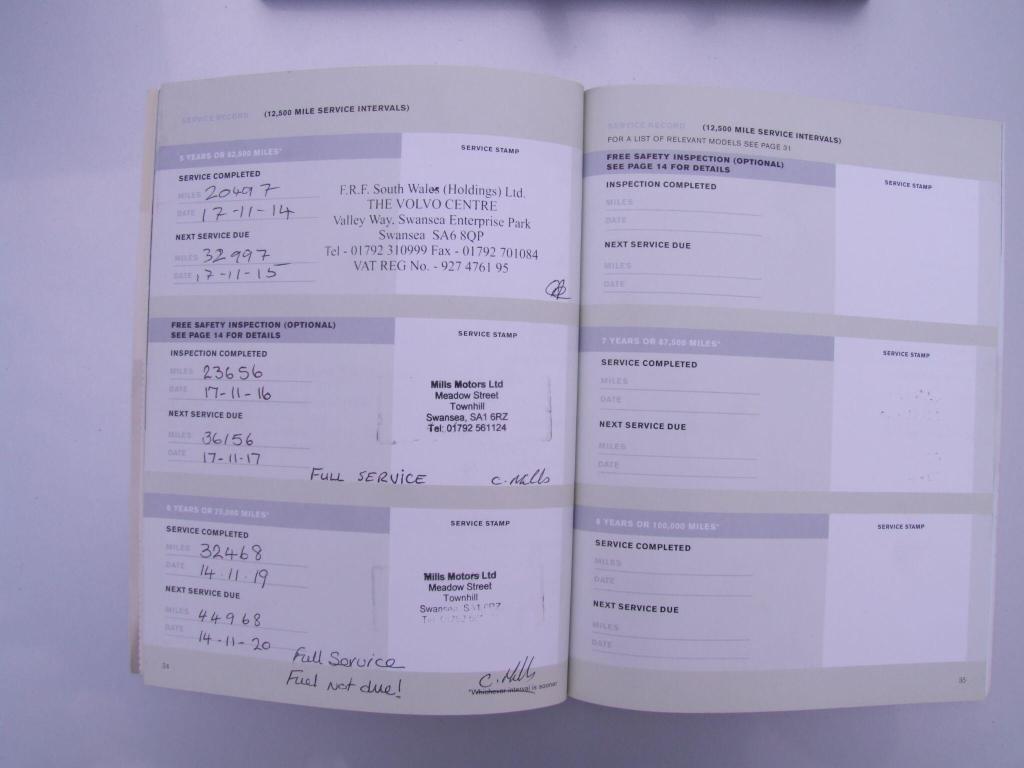 SERVICE RECORD (12,500 MILE SERVICE INTERVALS)
5 YEARS OR 62,500 MILES*
SERVICE STAMP
SERVICE COMPLETED
MILES 20497
DATE 17-11-14
NEXT SERVICE DUE
MILES 32997
DATE 17-11-15
F.R.F. South Wales (Holdings) Ltd.
THE VOLVO CENTRE
Valley Way, Swansea Enterprise Park
Swansea SA6 8QP
Tel - 01792 310999 Fax - 01792 701084
VAT REG No. - 927 4761 95
FREE SAFETY INSPECTION (OPTIONAL)
SEE PAGE 14 FOR DETAILS
SERVICE STAMP
INSPECTION COMPLETED
MILES 23656
DATE 17-11-16
NEXT SERVICE DUE
MILES 36156
DATE 17-11-17
Mills Motors Ltd
Meadow Street
Townhill
Swansea, SA1 6RZ
Tel: 01792 561124
FULL SERVICE C. Mills
6 YEARS OR 75,000 MILES*
SERVICE STAMP
SERVICE COMPLETED
MILES 32468
DATE 14.11.19
NEXT SERVICE DUE
MILES 44968
DATE 14-11-20
Mills Motors Ltd
Meadow Street
Townhill
Full Service
Fuel not due!
C. Mills
*Whichever interval is sooner
34
SERVICE RECORD (12,500 MILE SERVICE INTERVALS)
FOR A LIST OF RELEVANT MODELS SEE PAGE 31
FREE SAFETY INSPECTION (OPTIONAL)
SEE PAGE 14 FOR DETAILS
SERVICE STAMP
INSPECTION COMPLETED
MILES
DATE
NEXT SERVICE DUE
MILES
DATE
7 YEARS OR 87,500 MILES*
SERVICE STAMP
SERVICE COMPLETED
MILES
DATE
NEXT SERVICE DUE
MILES
DATE
8 YEARS OR 100,000 MILES*
SERVICE STAMP
SERVICE COMPLETED
MILES
DATE
NEXT SERVICE DUE
MILES
DATE
35